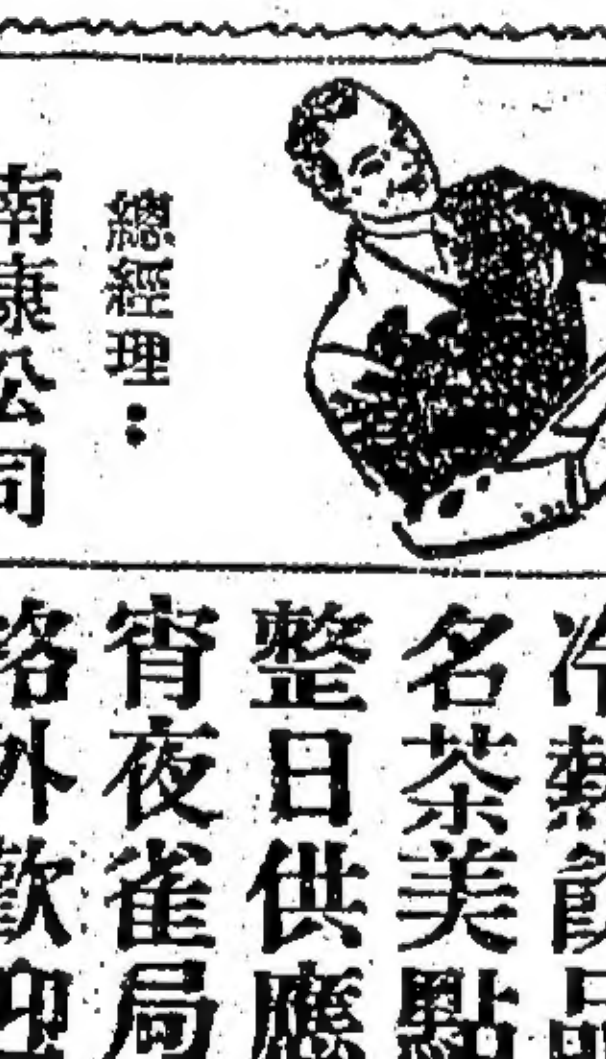 總經理：
南康公司
冷熱飲品
名茶美點
整日供應
宵夜雀局
格外歡迎